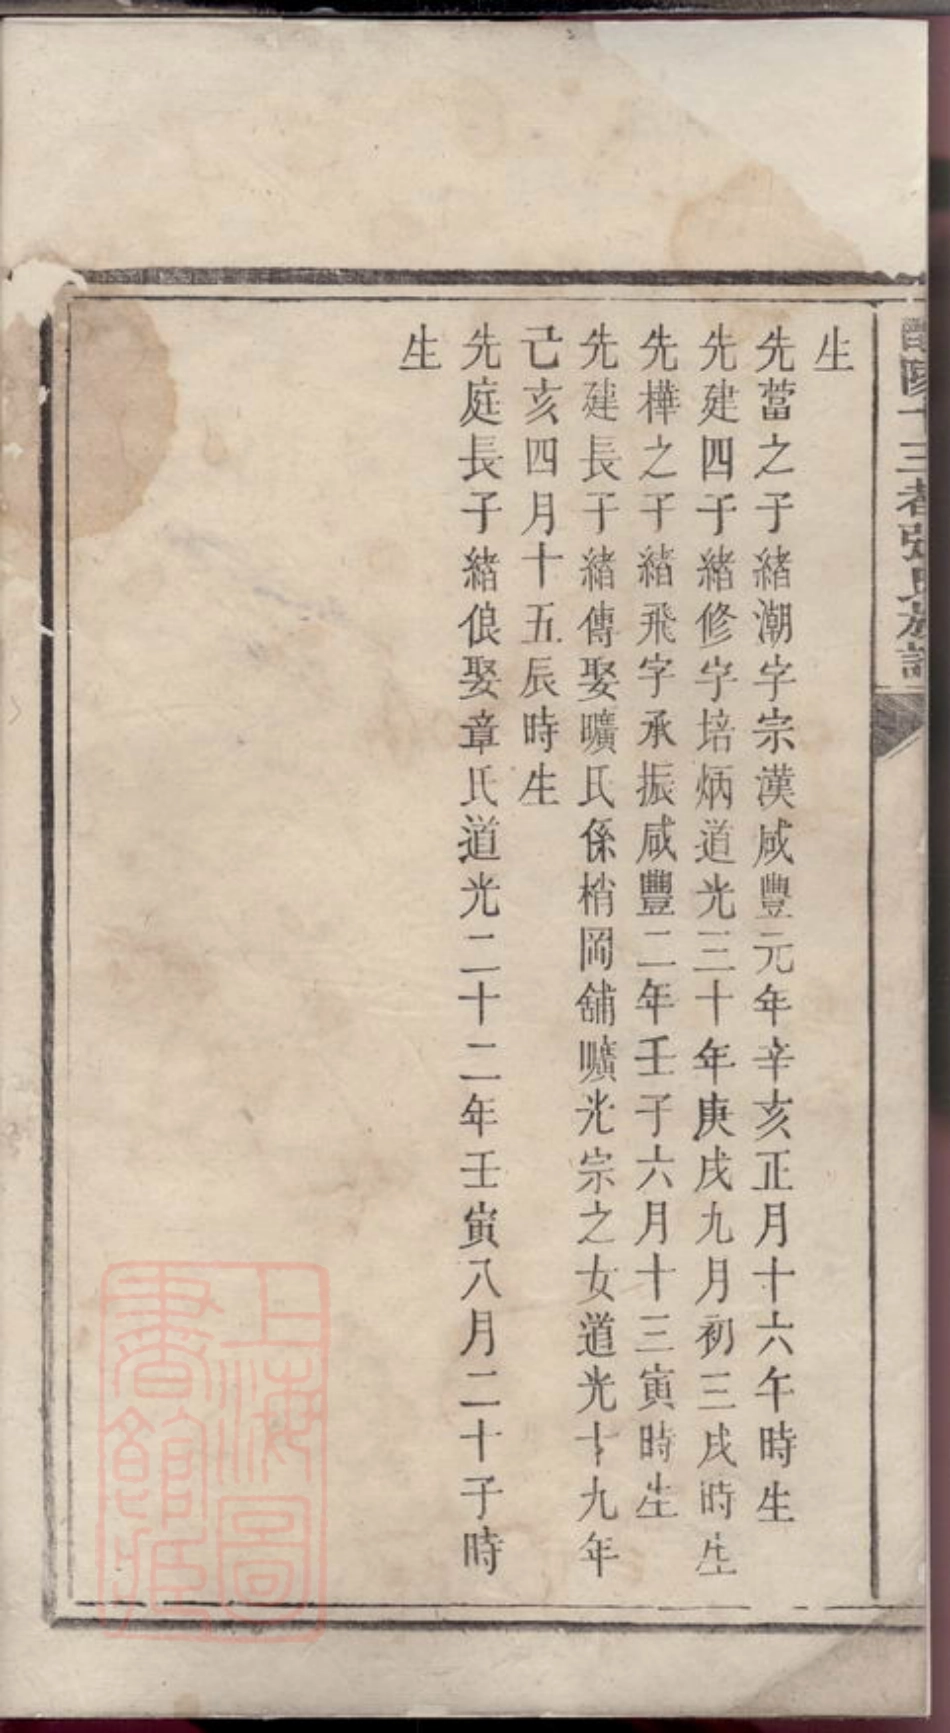 醴陵十三都張氏族譜
生
先當之子緒潮字宗漢咸豐元年辛亥正月十六午時生
先建四子緒修字培炳道光三十年庚戌九月初三戌時生
先樺之子緒飛字承振咸豐二年壬子六月十三寅時生
先建長子緒傳娶曠氏係梢岡舖曠光宗之女道光十九年
己亥四月十五辰時生
先庭長子緒俍娶章氏道光二十二年壬寅八月二十子時
生
上海圖
書館藏